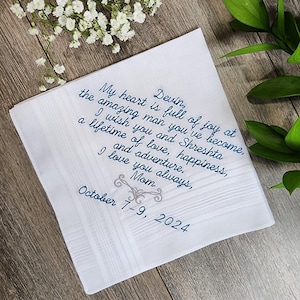 Devin,
My heart is full of joy at
the amazing man you've become,
I wish you and Shreshta
a lifetime of love, happiness,
and adventure.
I love you always,
Mom
October 7-9, 2024